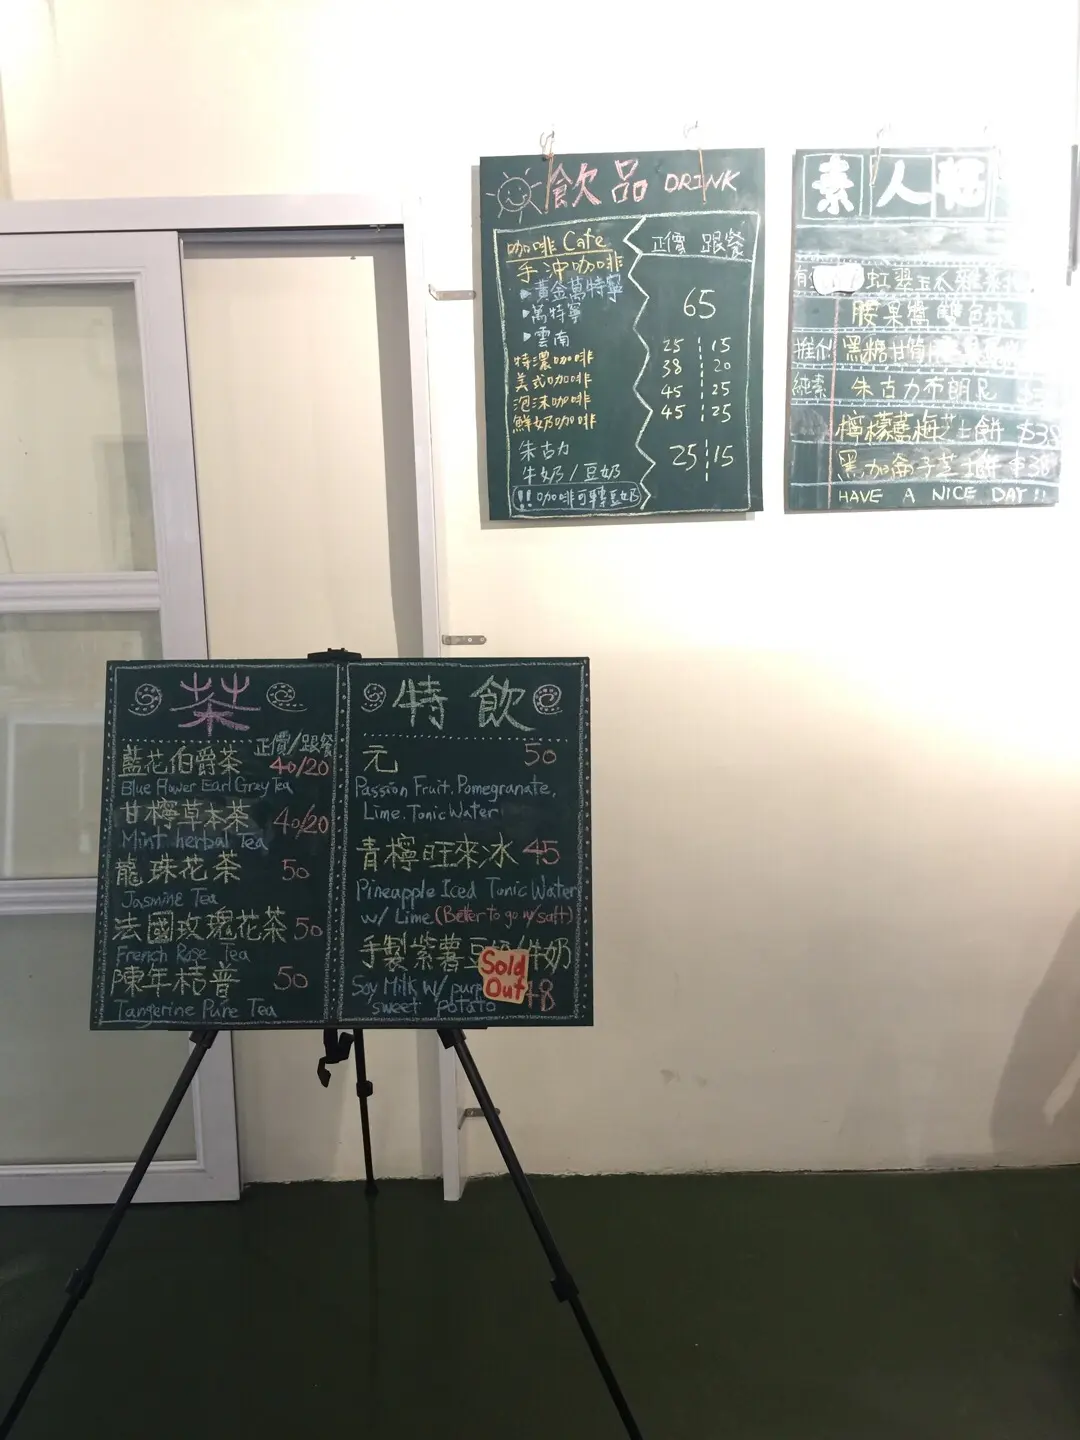 飲品 DRINK
咖啡 Cafe 正價 跟餐
手沖咖啡
▶黃金萬特寧
▶萬特寧 65
▶雲南
特濃咖啡 25 15
美式咖啡 38 20
泡沫咖啡 45 25
鮮奶咖啡 45 25
朱古力
牛奶/豆奶 25 15
!! 咖啡可轉豆奶
素人
虹翠玉瓜
腰果醬雙色
推介 黑糖甘筍
純素 朱古力布朗尼
檸檬藍梅芝士餅 $38
黑加侖子芝士餅 $38
HAVE A NICE DAY!!
茶
正價/跟餐
藍花伯爵茶 40/20
Blue Flower Earl Grey Tea
甘檸草本茶 40/20
Mint herbal Tea
龍珠花茶 50
Jasmine Tea
法國玫瑰花茶 50
French Rose Tea
陳年桔普 50
Tangerine Pure Tea
特飲
元 50
Passion Fruit. Pomegranate,
Lime. Tonic Water
青檸旺來冰 45
Pineapple Iced Tonic Water
w/ Lime (Better to go w/ salt)
手製紫薯豆奶/牛奶
Sold
Out
Soy Milk w/ purp 48
sweet potato